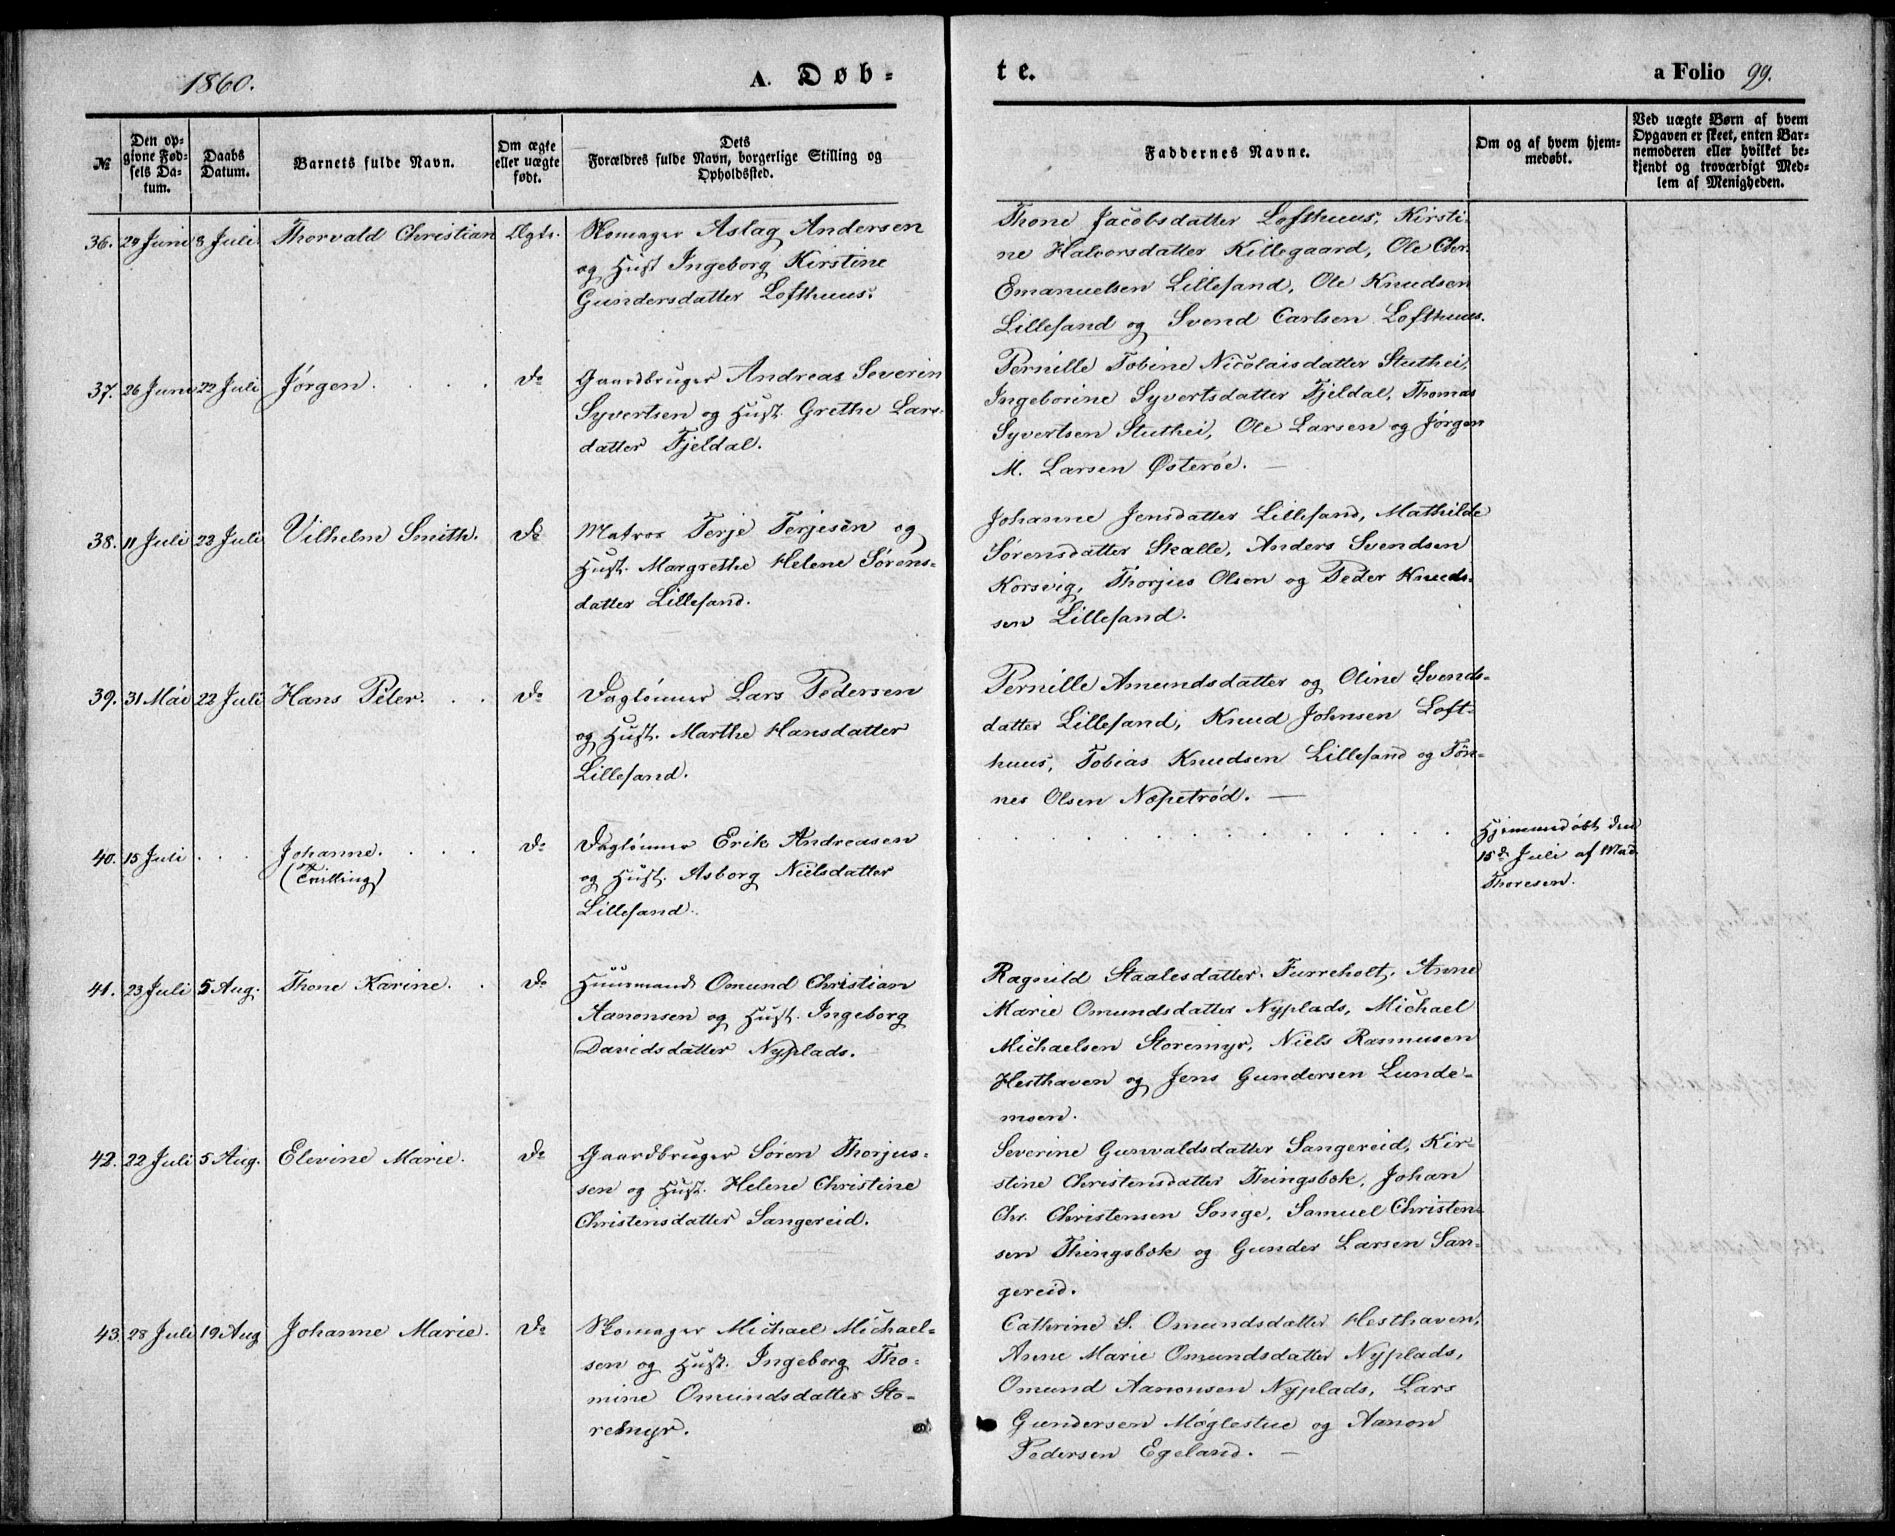 1860.
A. Døb-
te.
a Folio 99.
№
Den op-
givne Fød-
sels Da-
tum.
Daabs
Datum.
Barnets fulde Navn.
Om ægte
eller uægte
født.
Dets
Forældres fulde Navn, borgerlige Stilling og
Opholdssted.
Faddernes Navne.
Om og af hvem hjem-
medøbt.
Ved uægte Børn af hvem
Opgaven er skeet, enten Bar-
nemoderen eller hvilket be-
kjendt og troværdigt Med-
lem af Menigheden.
36. 24 Juni 8 Juli. Thorvald Christian Ægte.
Skomager Aslag Andersen
og Hust Ingeborg Kirstine
Gundersdatter Lofthuus.
Thone Jacobsdatter Lofthuus, Kirsti-
ne Halvorsdatter Killegaard, Ole Chr.
Emanuelsen Lillesand, Ole Knudsen
Lillesand og Svend Carlsen Lofthuus.
37. 26 Juni 22 Juli Jørgen. Do
Gaardbruger Andreas Severin
Syvertsen og Hust. Grethe Lars-
datter Fjeldal.
Pernille Tobine Nicolaisdatter Stuthei,
Ingeborine Syvertsdatter Fjeldal, Thomas
Syvertsen Stuthei, Ole Larsen og Jørgen
M. Larsen Østerøe. —
38. 11 Juli 22 Juli Vilhelm Smith. Do
Matros Terje Terjesen og
Hust. Margrethe Helene Sørens-
datter Lillesand.
Johanne Jensdatter Lillesand, Mathilde
Sørensdatter Skalle, Anders Svendsen
Korsvig, Thorjus Olsen og Peder Knuds-
sen Lillesand.
39. 31 Mai 22 Juli Hans Peter. Do
Daglønner Lars Pedersen
og Hust. Marthe Hansdatter
Lillesand.
Pernille Amundsdatter og Oline Svends-
datter Lillesand, Knud Johnsen Loft-
huus, Tobias Knudsen Lillesand og Tøn-
nes Olsen Næpetrød. —
40. 15 Juli Johanne. Do
(Tvilling)
Daglønner Erik Andreasen
og Hust. Asborg Nielsdatter
Lillesand.
Hjemmedøbt den
15de Juli af Mad.
Thoresen.
41. 23 Juli 5 Aug. Thone Karine. Do
Huusmand Omund Christian
Aanonsen og Hust. Ingeborg
Davidsdatter Nyplads.
Ragnild Staalesdatter Furreholt, Anne
Marie Omundsdatter Nyplads, Michael
Michaelsen Storemyr, Niels Rasmusen
Hesthaven og Jens Gundersen Lunde-
moen.
42. 22 Juli 5 Aug. Elevine Marie. Do
Gaardbruger Søren Thorjus-
sen og Hust. Helene Christine
Christensdatter Sangereid.
Severine Gunvaldsdatter Sangereid, Kir-
stine Christensdatter Thingsbok, Johan
Chr. Christensen Songe, Samuel Christen-
sen Thingsbok og Gunder Larsen San-
gereid.
43. 28 Juli 19 Aug Johanne Marie. Do
Skomager Michael Michael-
sen og Hust. Ingeborg Tho-
mine Omundsdatter Sto-
remyr.
Cathrine S. Omundsdatter Hesthaven,
Anne Marie Omundsdatter Nyplads,
Omund Aanonsen Nyplads, Lars
Gundersen Møglestue og Aanon
Pedersen Egeland. —